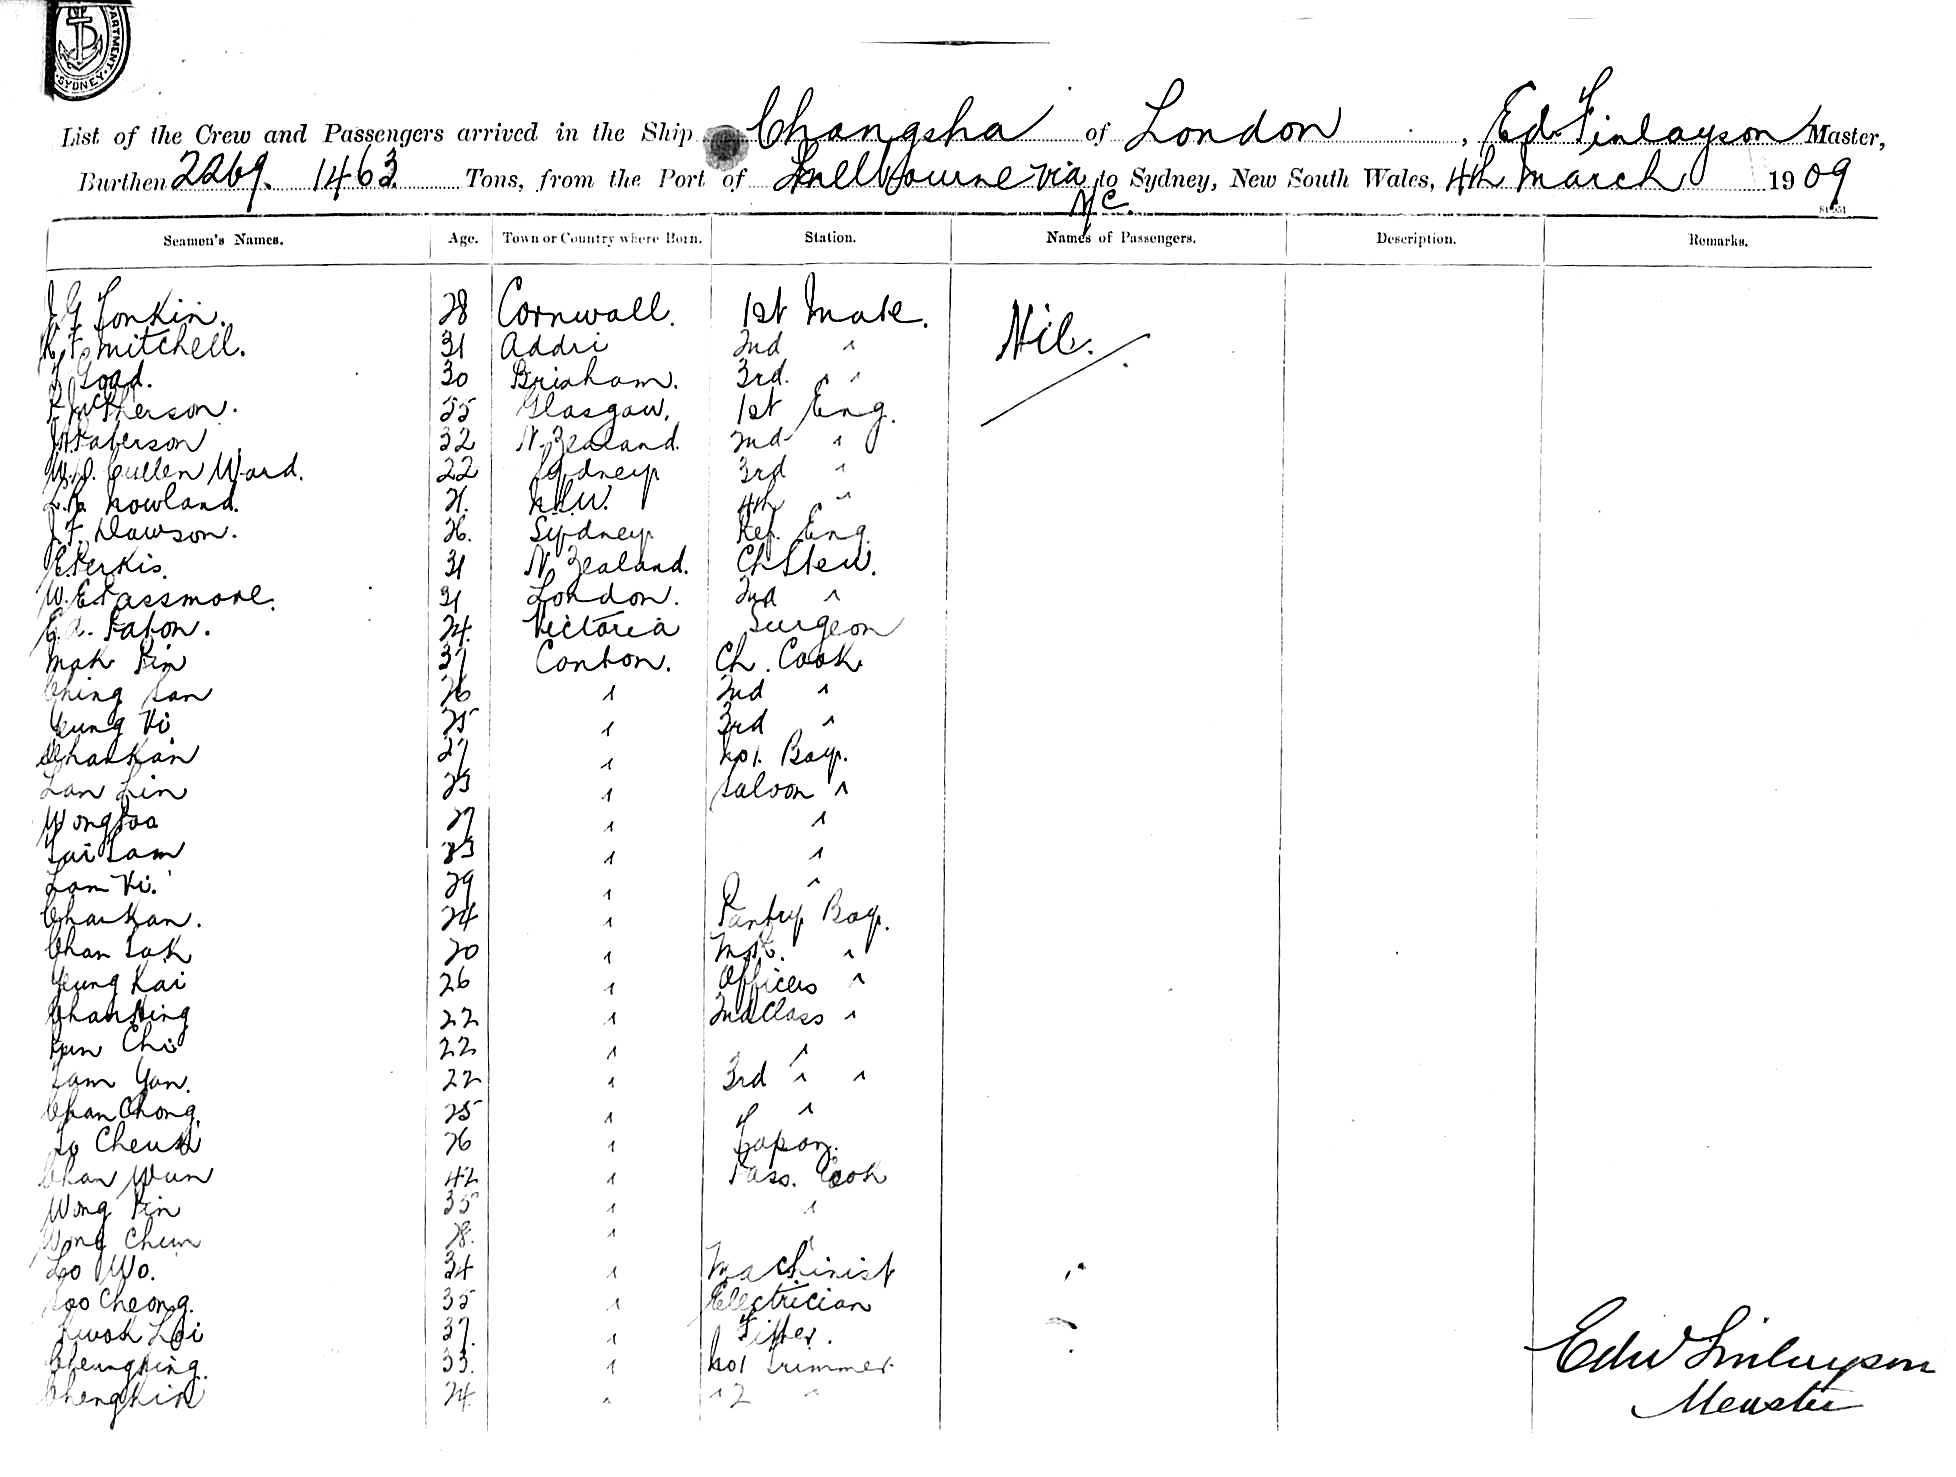 DEPARTMENT SYDNEY
List of the Crew and Passengers arrived in the Ship Changsha of London, Ed. Finlayson Master,
Burthen 2269. 1463. Tons, from the Port of Melbourne via to Sydney, New South Wales, 4th March 1909
N/C.
Seamen's Names. Age. Town or Country where Born. Station. Names of Passengers. Description. Remarks.
J G Tonkin. 28 Cornwall. 1st Mate. Nil.
Mitchell. 31 Addri 2nd "
Goad. 30 Brixham. 3rd. " "
McPherson. 55 Glasgow. 1st Eng.
Paterson 32 N. Zealand. 2nd "
W. D. Cullen Ward. 22 Sydney 3rd "
Nowland. 21. N.S.W. 4th "
J. F. Dawson. 26. Sydney Ref. Eng.
E. Perkis. 31 N. Zealand. Ch Stew.
W. E. Passmore. 31 London. 2nd "
E. A. Paton. 24. Victoria Surgeon
Mak Pin 37 Canton. Ch. Cook
Ching San 26 " 2nd "
Yeung Vi 25 " 3rd "
Chai Kan 27 " No 1. Boy.
Lan Lin 23 " Saloon "
Wong Soo 27 " "
Tai Sam 23 " "
Lam Vi. 29 " "
Chai Kan. 24 " Pantry Boy.
Chan Sak 20 " "
Yeung Kai 26 " Officers "
Chan Hing 22 " 2nd Class "
Chi 22 " "
Yan. 22 " 3rd " "
Chan Chong. 25 " "
26 "
Chan Wun 42 " Pass. Cook
Wong Pin 35 " "
Wong Chun 28. " "
Lo Wo. 34 " Machinist
Cheong. 35 " Electrician
Kwok Loi 37. " Fitter.
Cheung 33. " No 1 Trimmer
Cheng 24. " " 2 "
Edw Finlayson
Master